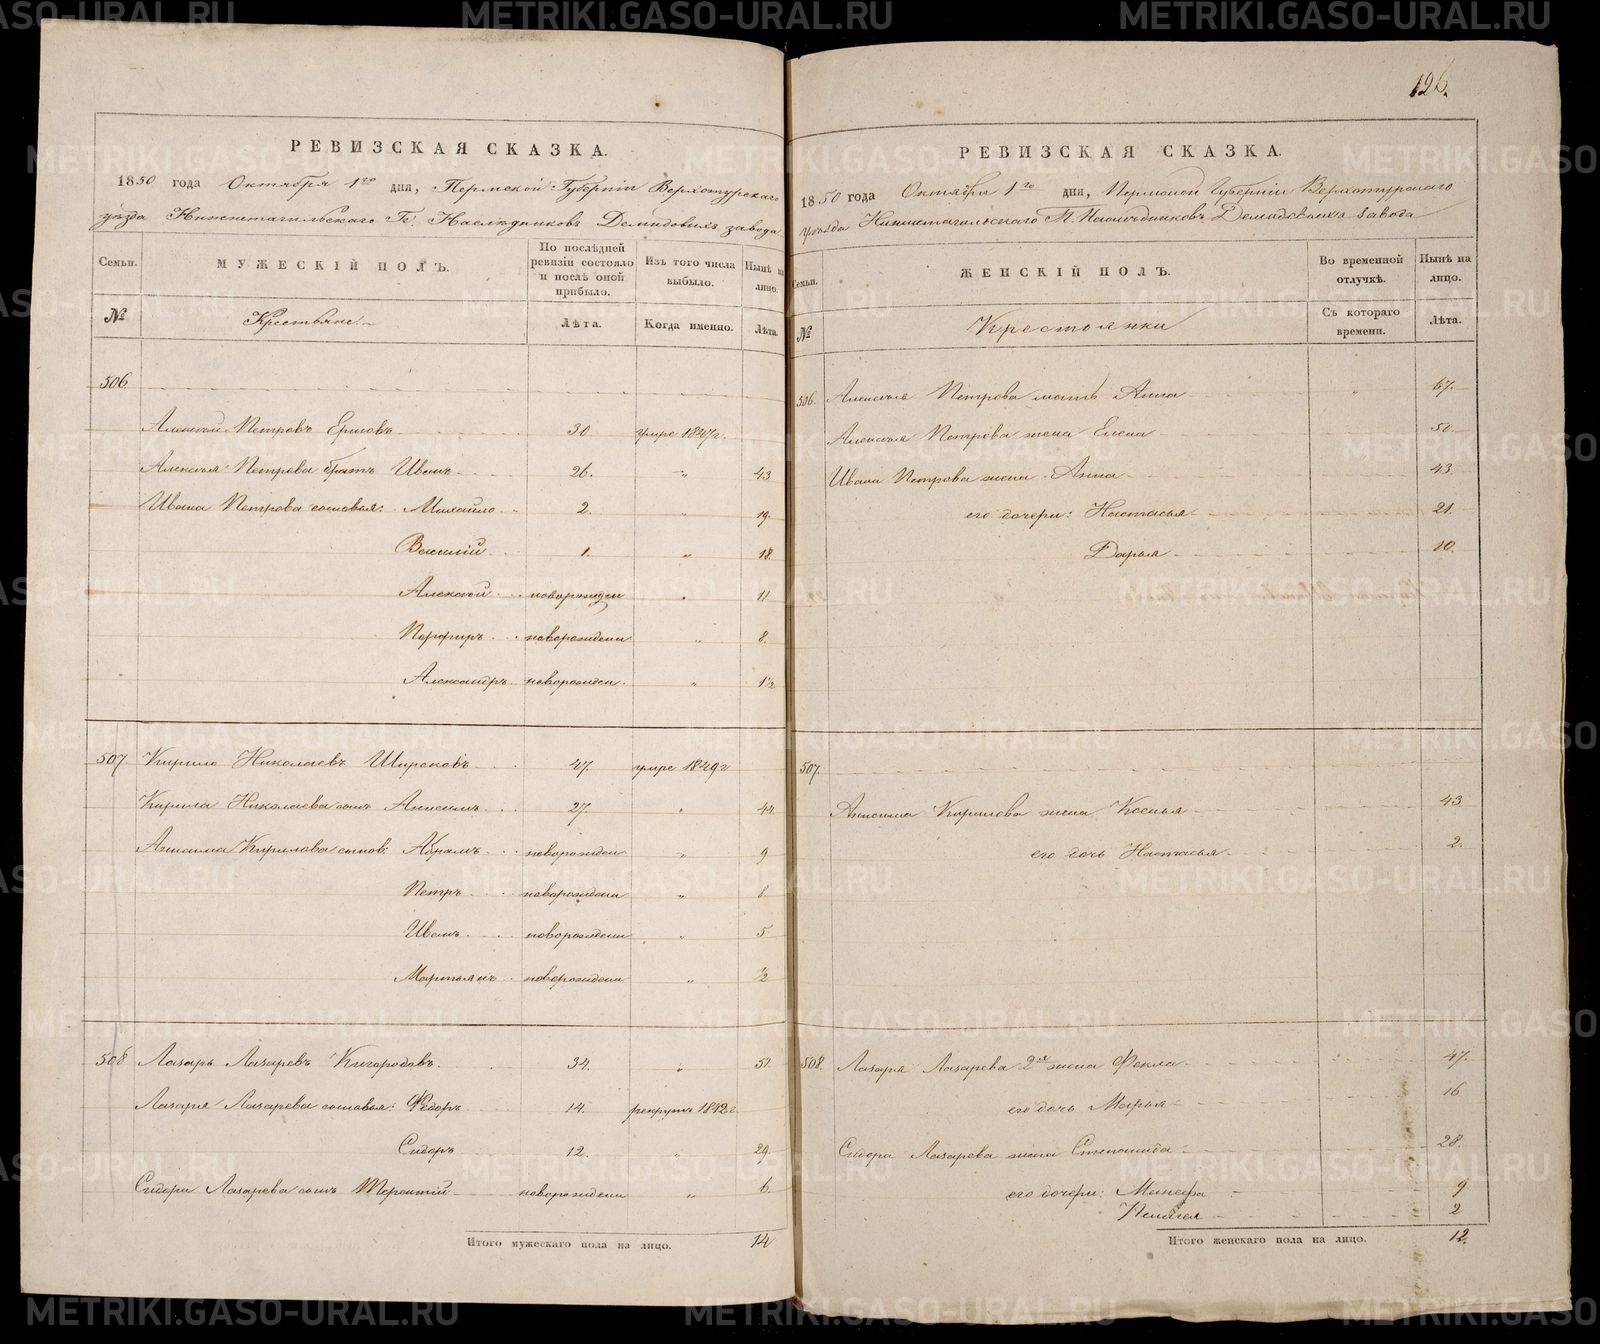 РЕВИЗСКАЯ СКАЗКА.
1850 года Октября 1го дня, Пермской Губерніи Верхотурскаго
уѣзда Нижнетагильскаго Гг. Наслѣдниковъ Демидовыхъ завода
Семьи.
МУЖЕСКІЙ ПОЛЪ.
По послѣдней ревизіи состояло и послѣ оной прибыло.
Изъ того числа выбыло.
Нынѣ на лицо.
№
Крестьяне
Лѣта.
Когда именно.
Лѣта.
506
Алексѣй Петровъ Ершовъ 30 умре 1847г.
Алексѣя Петрова братъ Иванъ 26. " 43
Ивана Петрова сыновья: Михайло 2. " 19
Василій 1. " 18
Алексѣй новорожден " 11
Порфиръ новорожденн " 8.
Александръ новорожден. " 1½
507 Кирило Николаевъ Широковъ 47. умре 1849г
Кирила Николаева сынъ Анисимъ 27. " 44
Анисима Кирилова сынов: Абрамъ новорожден " 9
Петръ новорожденн "
Иванъ новорожденн " 5
Мартьянъ новорожденн " ½
508 Лазарь Лазаревъ 34. " 51
Лазаря Лазарева сыновья: Ѳедоръ 14. рекрутъ 1842г
Сидоръ 12. " 29.
Сидора Лазарева сынъ Терентій новорожденн " 6.
Итого мужескаго пола на лицо. 14
126.
РЕВИЗСКАЯ СКАЗКА.
1850 года Октября 1го дня, Пермской Губерніи Верхотурскаго
уѣзда Нижнетагильскаго Гг. Наслѣдниковъ Демидовыхъ завода
Семьи.
ЖЕНСКІЙ ПОЛЪ.
Во временной отлучкѣ.
Нынѣ на лицо.
№
Крестьянки
Съ котораго времени.
Лѣта.
506. Алексѣя Петрова мать Анна " 67.
Алексѣя Петрова жена Елена 50.
Ивана Петрова жена Анна 43
его дочери: Настасья 21.
Дарья 10.
507.
Анисима Кирилова жена Ксенья 43
его дочь Настасья 2.
508. Лазаря Лазарева 2я жена Ѳекла 47.
его дочь Марья 16
Сидора Лазарева жена Степанида 28.
его дочери: Минефа 9
Пелагея 2
Итого женскаго пола на лицо. 12.
METRIKI.GASO-URAL.RU